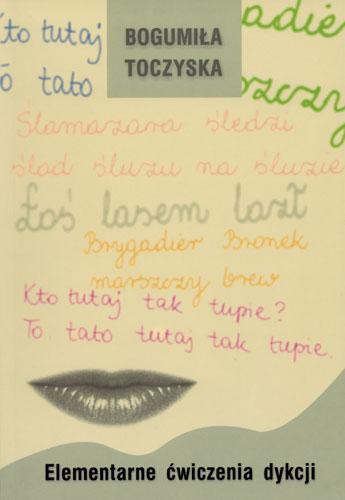 BOGUMIŁA
TOCZYSKA
Kto tutaj
To tato
adier
szczy
Ślamazara śledzi
ślad śluzu na śluzie
Łoś lasem lazł
Brygadier Bronek
marszczy brew
Kto tutaj tak tupie?
To tato tutaj tak tupie.
Elementarne ćwiczenia dykcji